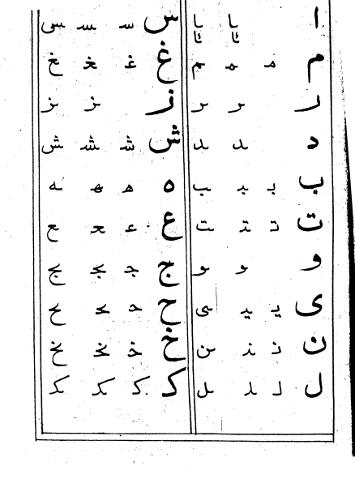 ا س سـ ـسـ ـس
م مـ ـمـ ـم غ غـ ـغـ ـغ
ر ـر ـر ز ـز ـز
د ـد ـد ش شـ ـشـ ـش
ب بـ ـبـ ـب ه هـ ـهـ ـه
ت تـ ـتـ ـت ع عـ ـعـ ـع
و ـو ـو ج جـ ـجـ ـج
ی یـ ـیـ ـی ح حـ ـحـ ـح
ن نـ ـنـ ـن خ خـ ـخـ ـخ
ل لـ ـلـ ـل ک کـ ـکـ ـک